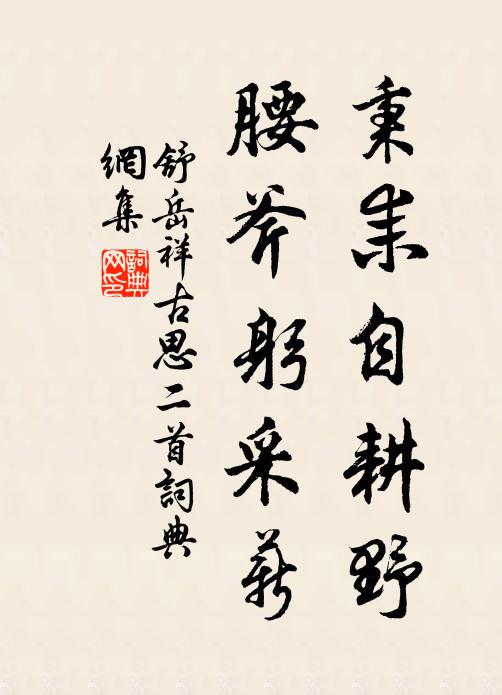 秉耒自耕野
腰斧躬采薪
舒岳祥古思二首詞典
網集
詞典网印